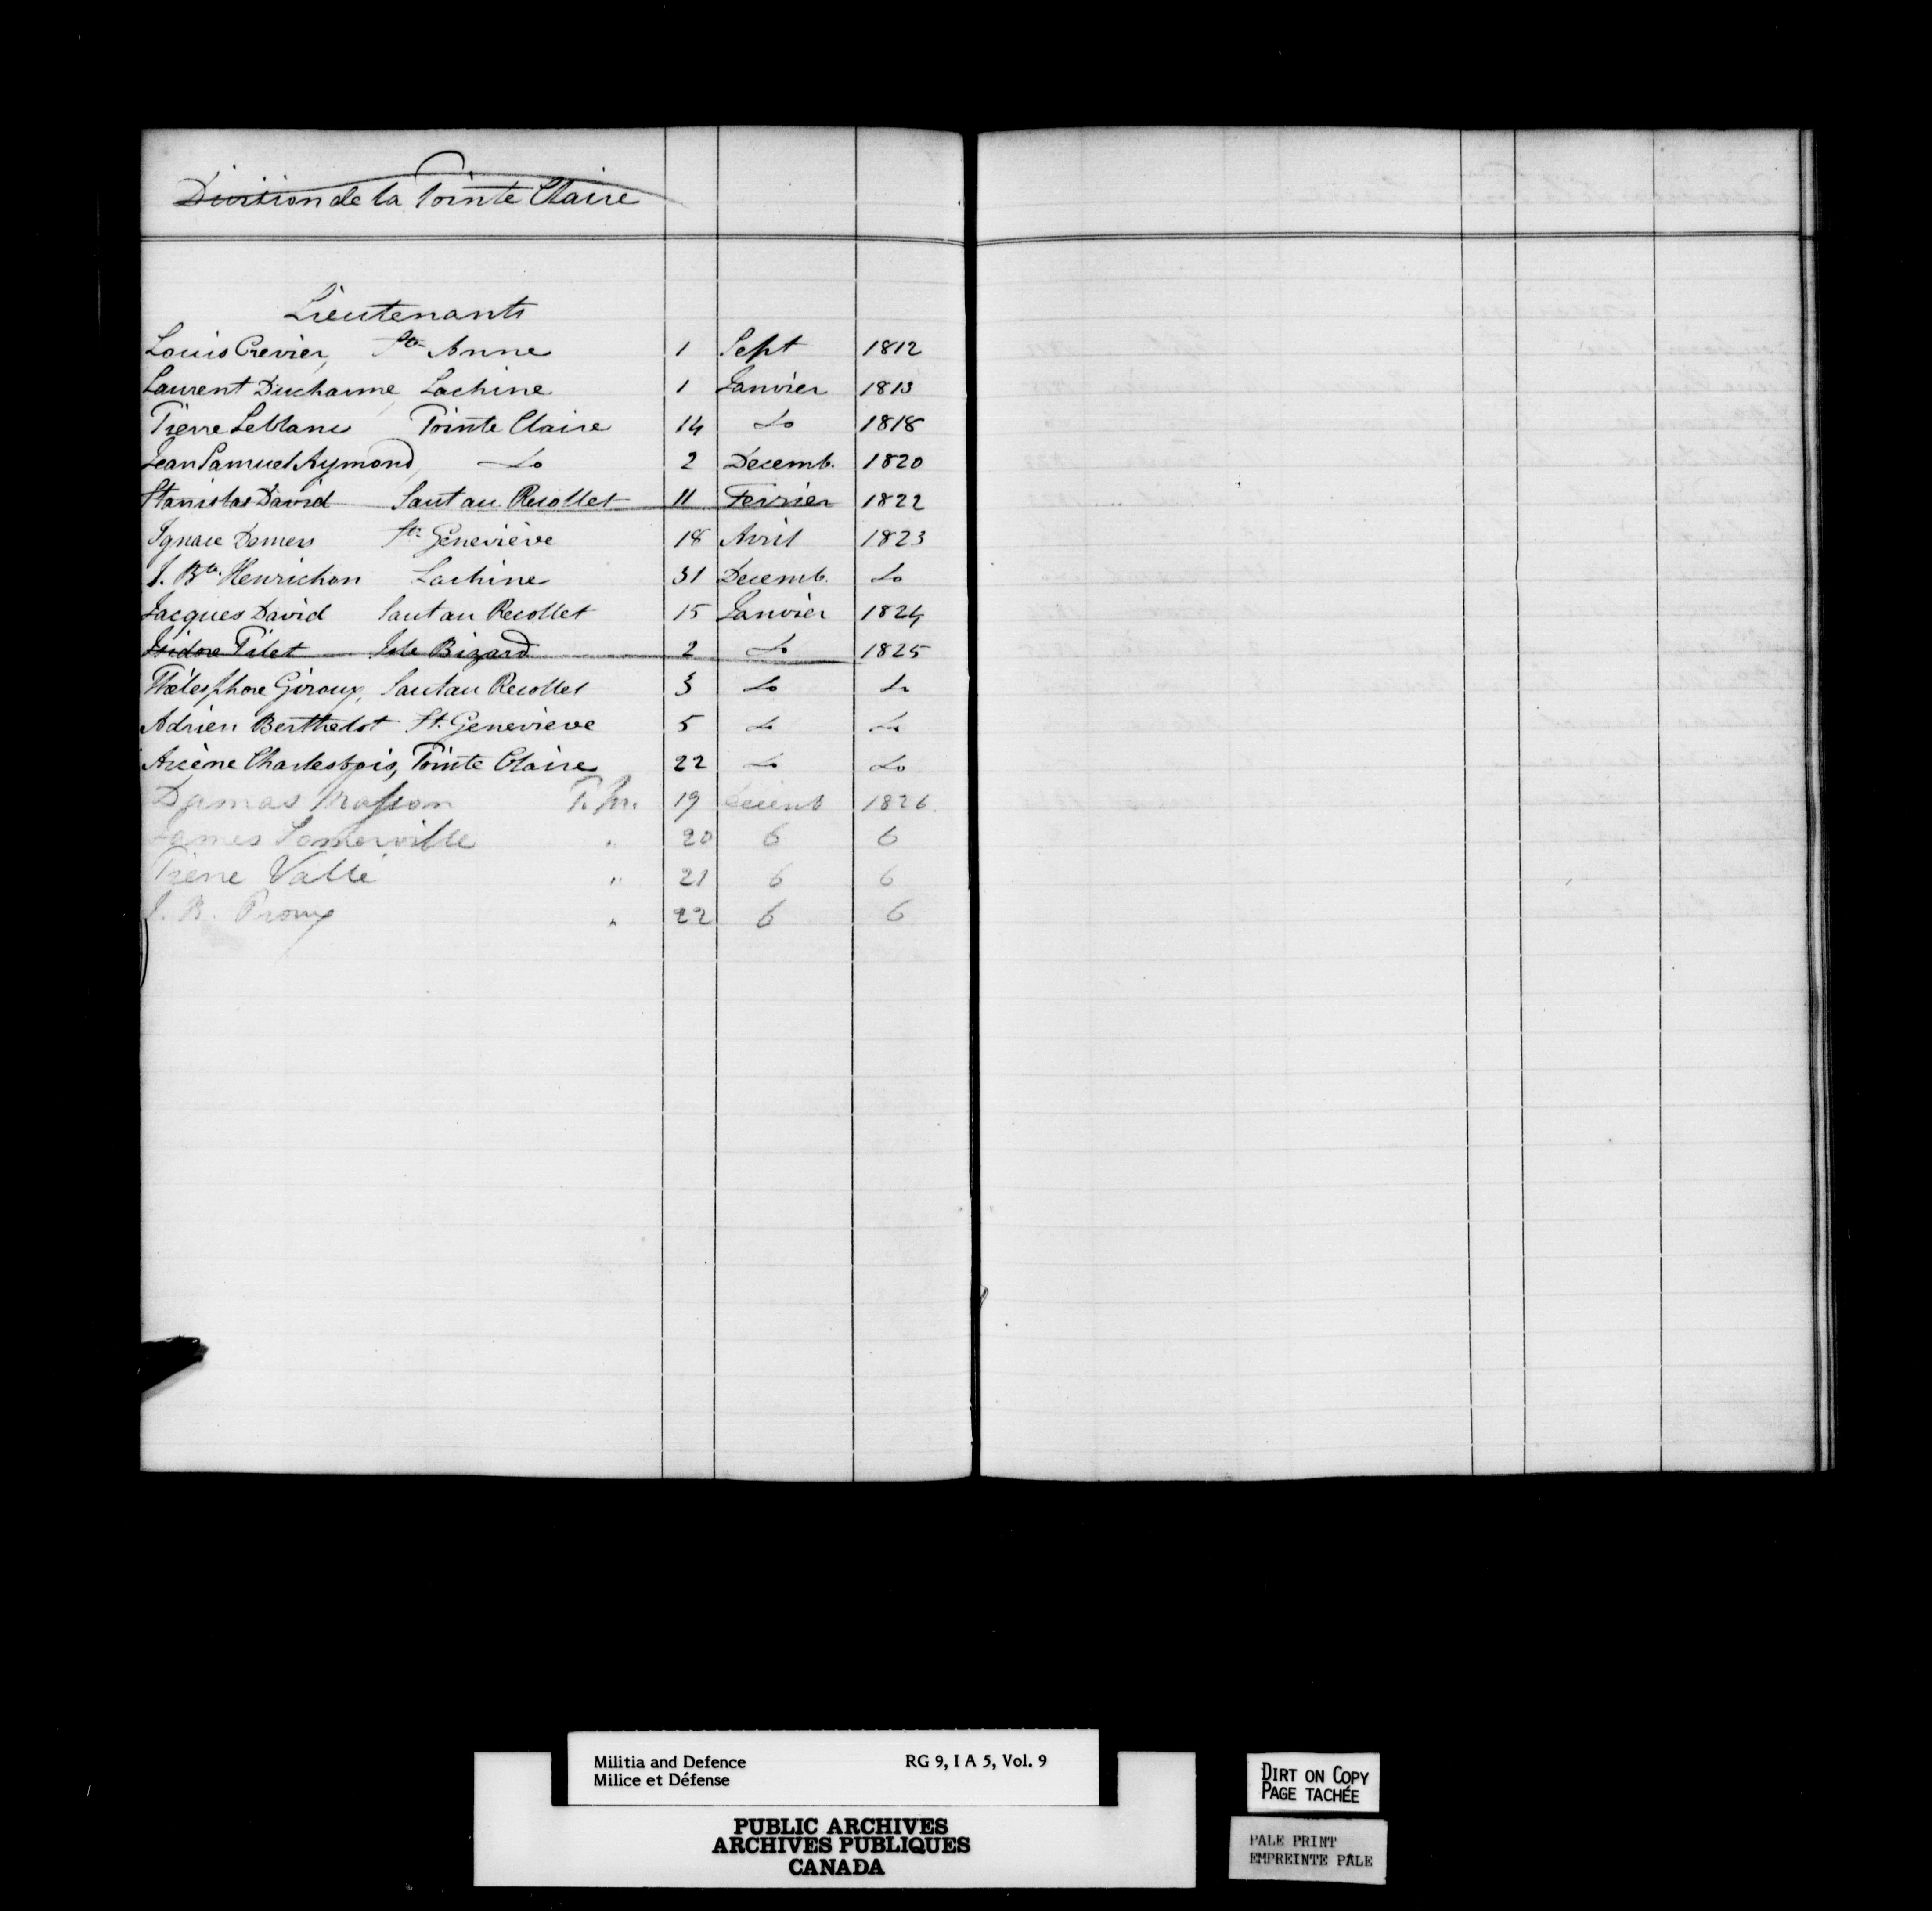 Division de la Pointe Claire
Lieutenants
Louis Crevier, Ste Anne 1 Sept 1812
Laurent Ducharme, Lachine 1 Janvier 1813
Pierre Leblanc Pointe Claire 14 do 1818
Jean Samuel Aymond, do 2 Decemb. 1820
Stanislas David Saut au Recollet 11 Fevrier 1822
Ignace Demers Ste Geneviève 18 Avril 1823
J. Bte. Henrichon Lachine 31 Decemb. do
Jacques David Saut au Recollet 15 Janvier 1824
Isidore Pilet Isle Bizard 2 do 1825
Thélesphore Giroux, Saut au Recollet 3 do do
Adrien Berthelot St. Genevieve 5 do do
Arcène Charlesbois, Pointe Claire 22 do do
Damas Masson 19 Decemb 1826.
James Somerville " 20 6 6
Pierre Vallé " 21 6 6
J. B. Proux " 22 6 6
Militia and Defence RG 9, I A 5, Vol. 9
Milice et Défense
PUBLIC ARCHIVES
ARCHIVES PUBLIQUES
CANADA
DIRT ON COPY
PAGE TACHÉE
PALE PRINT
EMPREINTE PÂLE